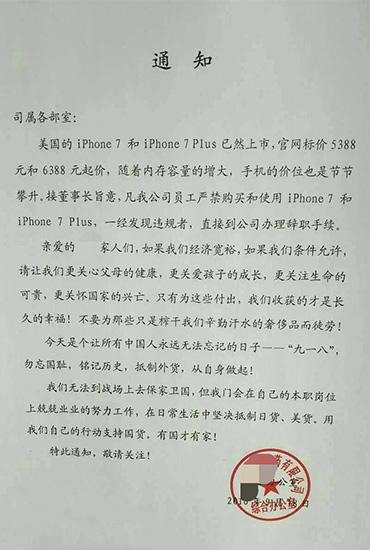 通 知
司属各部室：
美国的 iPhone 7 和 iPhone 7 Plus 已然上市，官网标价 5388
元和 6388 元起价，随着内存容量的增大，手机的价位也是节节
攀升。接董事长旨意，凡我公司员工严禁购买和使用 iPhone 7 和
iPhone 7 Plus，一经发现违规者，直接到公司办理辞职手续。
亲爱的 家人们，如果我们经济宽裕，如果我们条件允许，
请让我们更关心父母的健康，更关爱孩子的成长，更关注生命的
可贵，更关怀国家的兴亡。只有为这些付出，我们收获的才是长
久的幸福！不要为那些只是榨干我们辛勤汗水的奢侈品而徒劳！
今天是个让所有中国人永远无法忘记的日子——“九一八”，
勿忘国耻，铭记历史，抵制外货，从自身做起！
我们无法到战场上去保家卫国，但我们会在自己的本职岗位
上兢兢业业的努力工作，在日常生活中坚决抵制日货、美货。用
我们自己的行动支持国货。有国才有家！
特此通知，敬请关注！
有限公司
办公室
综合办公室
日